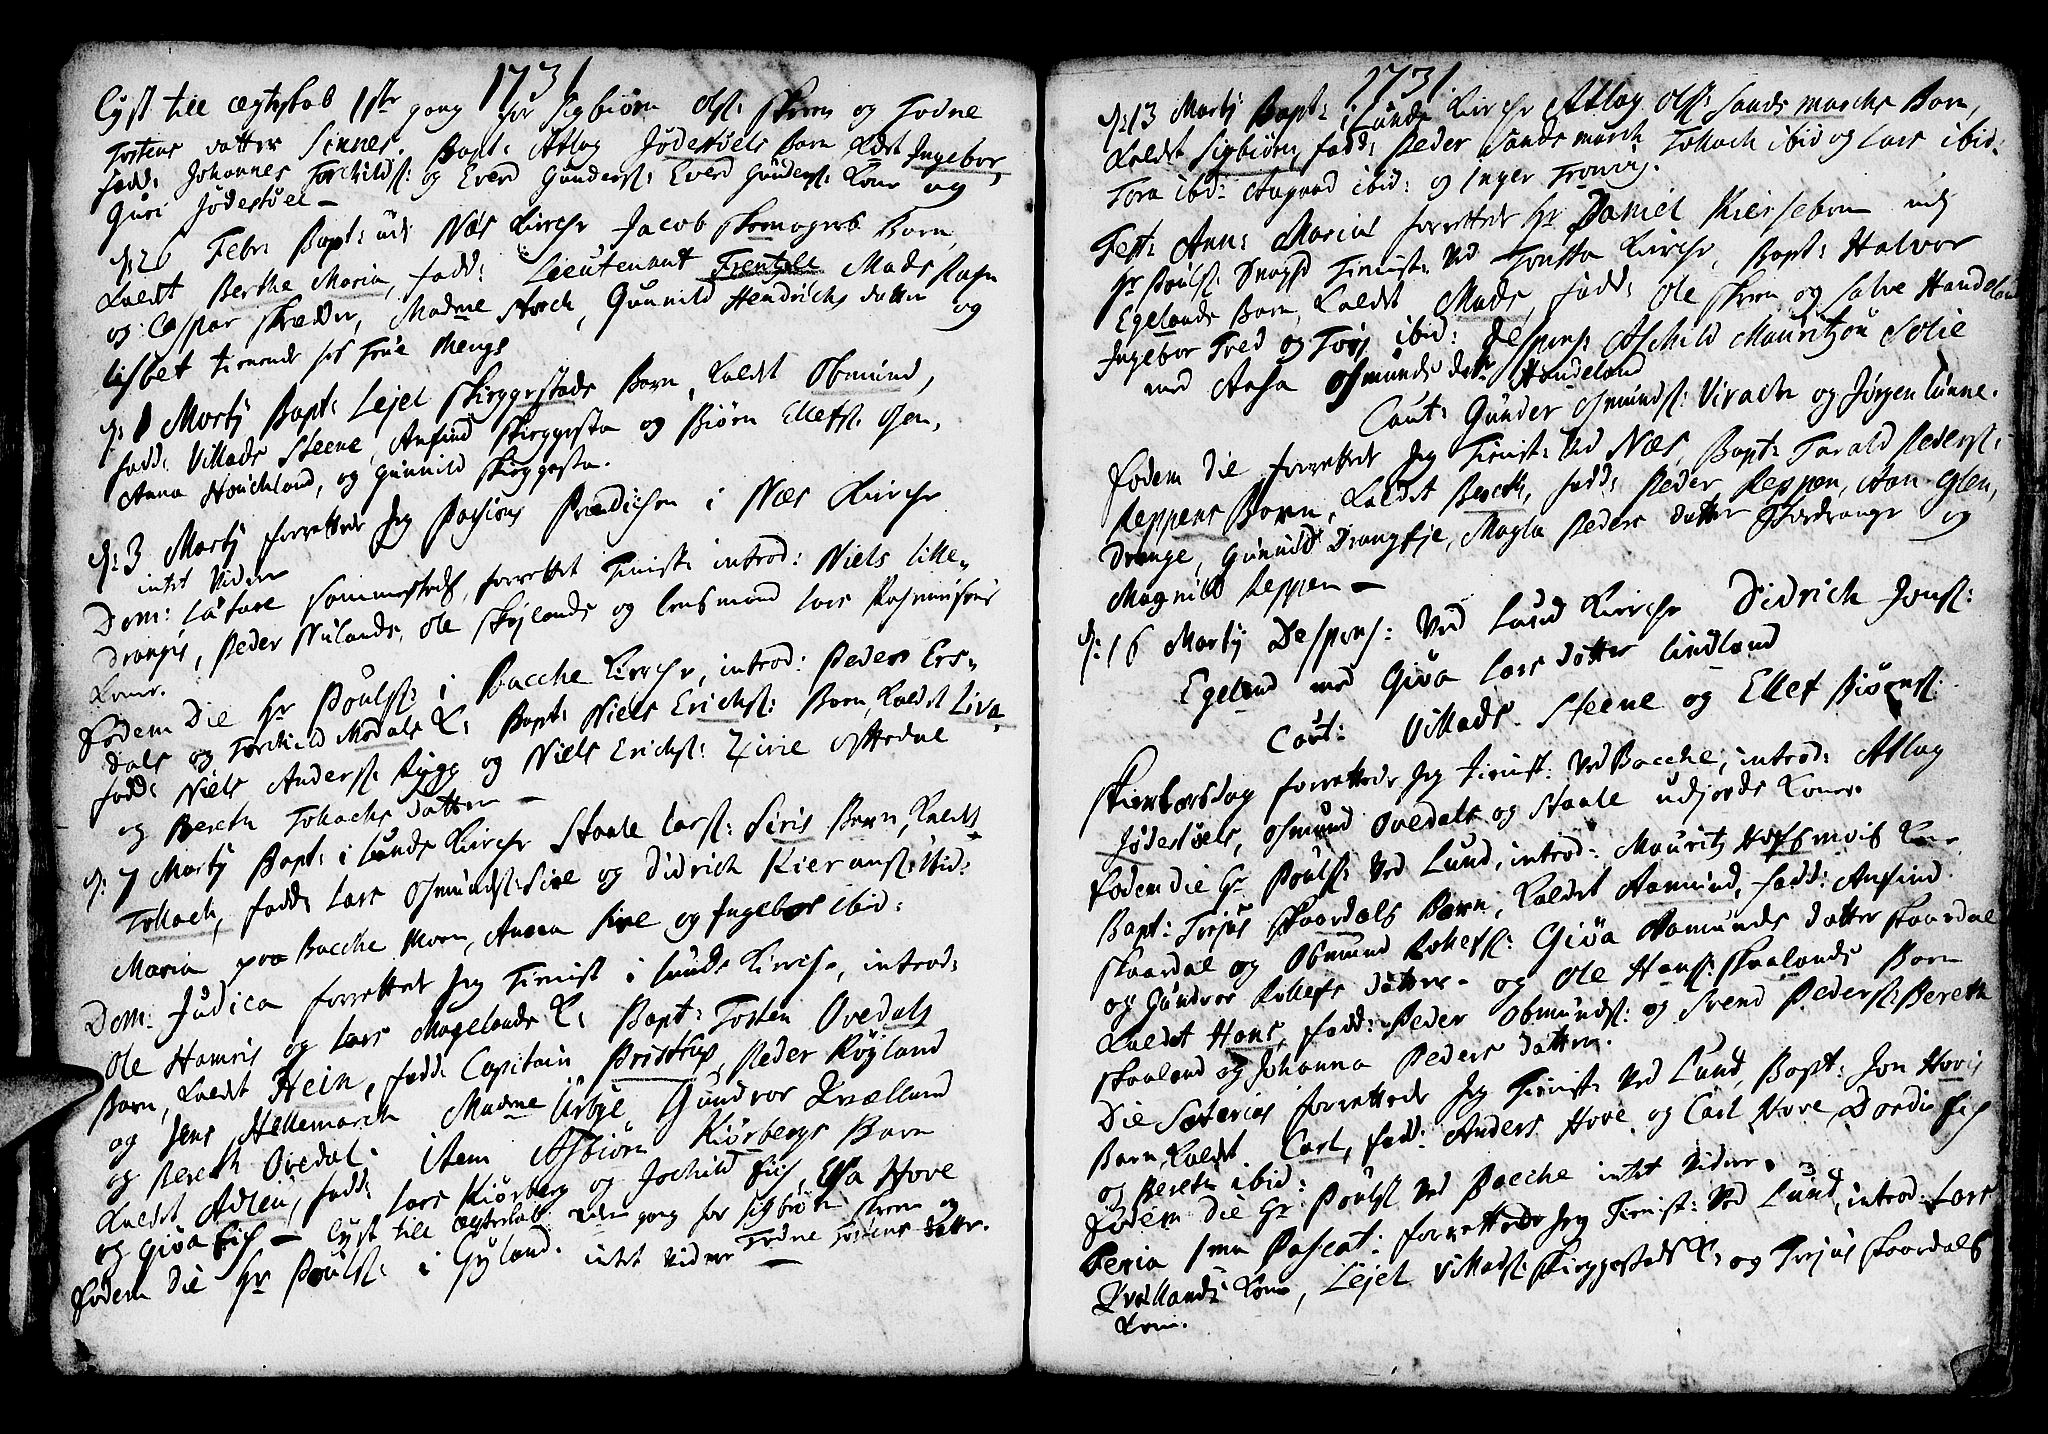 1731
Lyst till ægteskab 1ste gang for Sigbiørn Ols: Skeen og Todne
Tostens datter Sinnes. Bapt: Atlag Jødestøels barn kaldet Ingebor,
fadd: Johannes Torchilds: og Everd Gunders: Everd Gunders: Kone og
Guri Jødestøel —
d: 26 Febr: Bapt: udi Næs Kirche Jacob Skomagers Barn,
kaldt Berthe Maria, fadd: Lieutenant Frentzle Mads
og Caspar Skredder, Madme Storch, Gunnild Hendrichs datter og
Lisbet tienende hos Frue Mengs
d: 1 Martij Bapt: Lejel Skieggestads Barn, kaldet Obmund,
fadd: Villads Steene, Anfind Skieggesta og Biørn Ellefs: Osen,
Anna Houchland, og Gunnild Skieggesta.
d: 3 Martij forrettede Jeg Prædichen i Næs Kirche
intet videre
Dom: Lætare sammesteds, forrettet Tienist: introd: Niels Lille-
drangis, Peder Nulands, Ole Skøjlands og Lensmand Lars Rasmusens
Kone.
Eodem Die Hr Pouls: i Bacche Kirche, introd: Peder Ers-
dals og Torchild Modals K: Bapt: Niels Erichs: Barn, kaldet Liva,
fadd: Niels Anders: Rygg og Niels Erichs: Zirie
og Bereth Tollachs datter —
d: 7 Martij Bapt: i Lunds Kirche Staale Lars: Siris Barn, kaldet
Tollach, fadd: Lars Osmunds: Sire og Didrich Kierans: ibid:
Maria paa Bacche Moen, Anna Sire og Ingebor ibid:
Dom: Judica forrettet Jeg Tienist i Lunds Kirche, introd:
Ole Hamris og Lars Magelands K: Bapt: Tosten Ovedals
Barn, kaldet Hein, fadd: Capitain Pristrup, Peder Røyland
og Jens Hellemarch Madme Urbye Gundvor Qvælland
og Bereth Ovedal. item Asbiørn Kiørbergs Barn
kaldet Adlen, fadd: Lars Kiørberg og Jochild Eich, Elsa Hove
og Giøa Eich — Lyst till ægteskab gang for Sigbiørn Skeen og
Todne Tostens datter.
Eodem Die Hr Pouls: i Gyland. intet videre —
1731
d: 13 Martij Bapt: i Lunds Kirche Atlag Ols: Sandsmarchs Barn,
kaldet Sigbiørn, fadd: Peder Sandsmarch Tollach ibid og Lars ibid:
Tora ibid: Aagaad ibid: og Inger
Fest: Ann: Mariæ forrettede Hr Daniel Kiersebom udj
Hr Pouls: Tienist: Ved Tonsta Kirche, Bapt: Halvor
Egelands Barn, kaldet Mads, fadd: Ole Skeen og Salve Handeland
Ingebor Tved og ibid: Despens: Aschild Mauritzøn Solie
med Aasa Osmunds datt: Handeland
Caut: Gunder Osmunds: Virach og Jørgen Tunne.
Eodem Die forrettede Jeg Tienist: Ved Næs, Bapt: Tarald Peders:
Reppens Barn, kaldet Bereth, fadd: Peder Reppen, Aan Glen,
Drange, Gunnild, Magla Peders datter og
Magnild Reppen —
d: 16 Martij Despens: Ved Lund Kirche Didrich Jons:
Egeland med Giøa Lars datter Lindland
Caut: Villads Steene og Ellef Biørns:
Skiertorsdag forrettede Jeg Tienist: Ved Bacche, introd: Atlag
Jødestøels, Osmund Ovedals og Staale Udjords Koner.
Eodem Die Hr Pouls: Ved Lund, introd: Mauritz Kone
Bapt: Torjus Skaardals Barn, kaldet Aamund, fadd: Anfind
Skaardal og Obmund Rollefs: Giøa Aamunds datter Skaardal
og Gundvor Rollefs datter. og Ole Hans: Skaalands Barn
kaldet Hans, fadd: Peder Obmunds: og Svend Peders: Bereth
Skaaland og Johanna Peders datter.
Die forrettede Jeg Tienist: Ved Lund, Bapt: Jon Hovis
Barn, kaldet Carl, fadd: Anders Hove og Carl Hove, Dordi Eich
og Bereth ibid:
Eodem Die Hr Pouls: Ved Bacche intet videre.
Feria 1ma Paschat: forrettede Jeg Tienist: Ved Lund, introd: Lars
Qvællands Kone, Lejel Villads: Skieggestads K: og Torjus Skaardals
Kone.